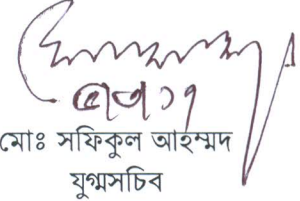 মোঃ সফিকুল আহম্মদ
যুগ্মসচিব